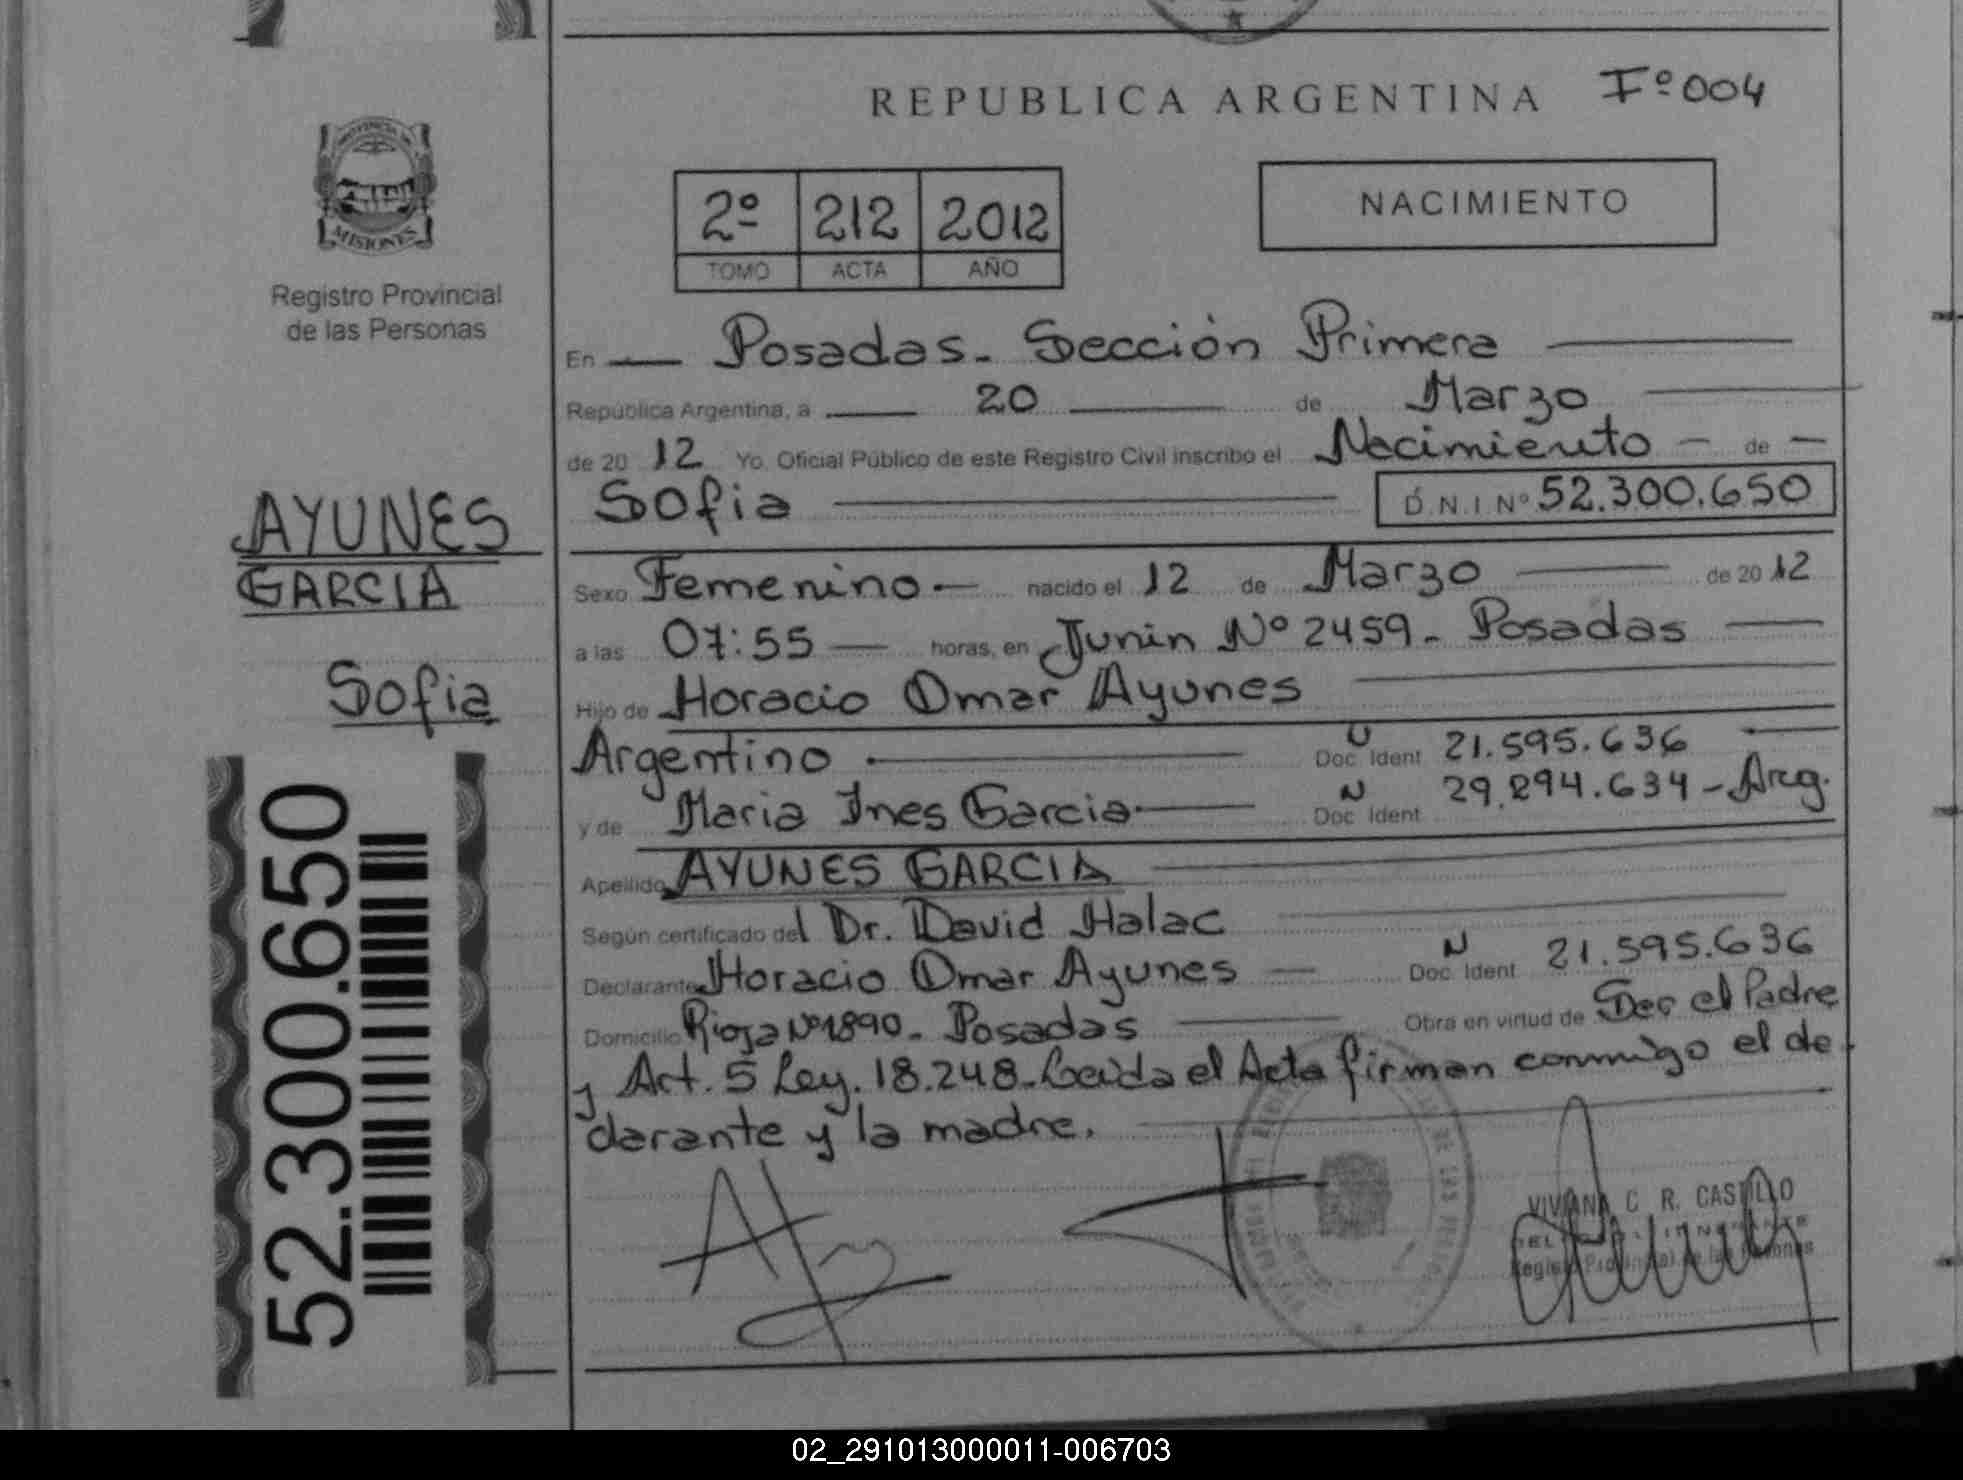 REPUBLICA ARGENTINA Fº 004
PROVINCIA DE
MISIONES
Registro Provincial
de las Personas
2º 212 2012
TOMO ACTA AÑO
NACIMIENTO
En Posadas. Sección Primera
República Argentina, a 20 de Marzo
de 20 12 Yo Oficial Público de este Registro Civil inscribo el Nacimiento de
Sofia D.N.I. Nº 52.300.650
AYUNES
GARCIA
Sofia
Sexo Femenino nacido el 12 de Marzo de 20 12
a las 07:55 horas, en Junin Nº 2459. Posadas
Hijo de Horacio Omar Ayunes
Argentino Doc. Ident 21.595.636
y de Maria Ines Garcia Doc. Ident 29.294.634 - Arg.
Apellido AYUNES GARCIA
Según certificado del Dr. David Halac
Declarante Horacio Omar Ayunes Doc. Ident N 21.595.636
Domicilio Rioja Nº 1890. Posadas Obra en virtud de Ser el Padre
y Art. 5 Ley. 18.248. Leida el Acta firman conmigo el de
clarante y la madre.
VIVIANA C R. CASTILLO
Registro Provincial de las Personas
52.300.650
02_291013000011-006703